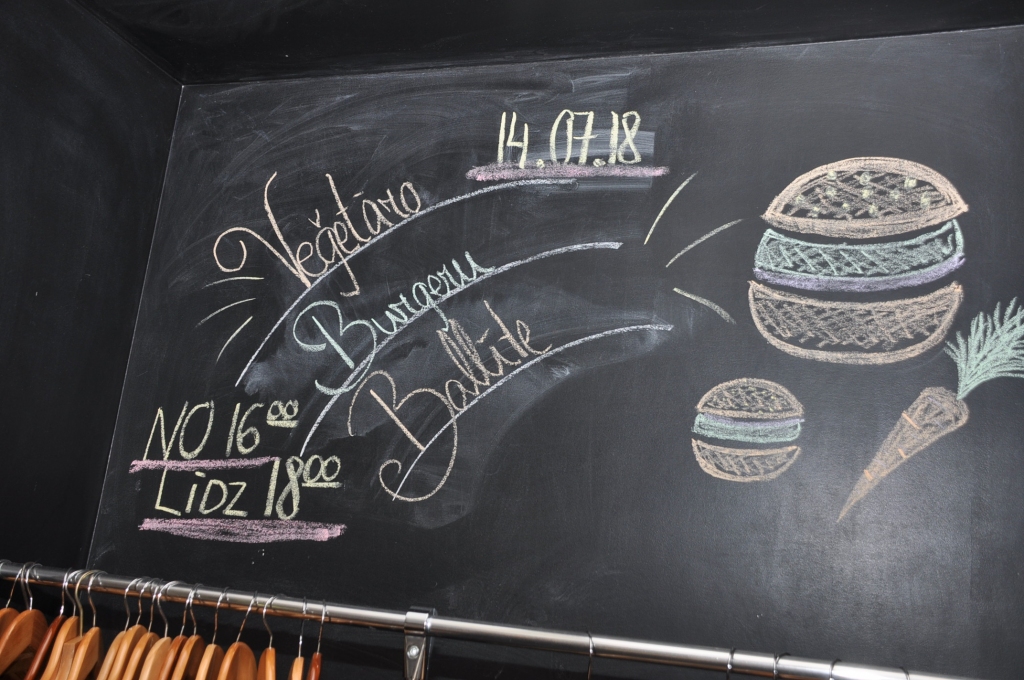 14.07.18
Veģetāro
Burgeru
Ballīte
NO 16⁰⁰
Līdz 18⁰⁰